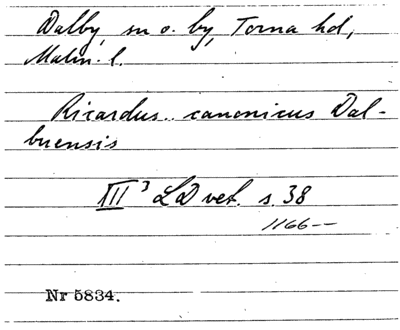 Dalby, sn o. by, Torna hd,
Malm. l.
Ricardus canonicus Dal-
buensis
XII³ LD vet. s. 38
1166—
Nr 5834.